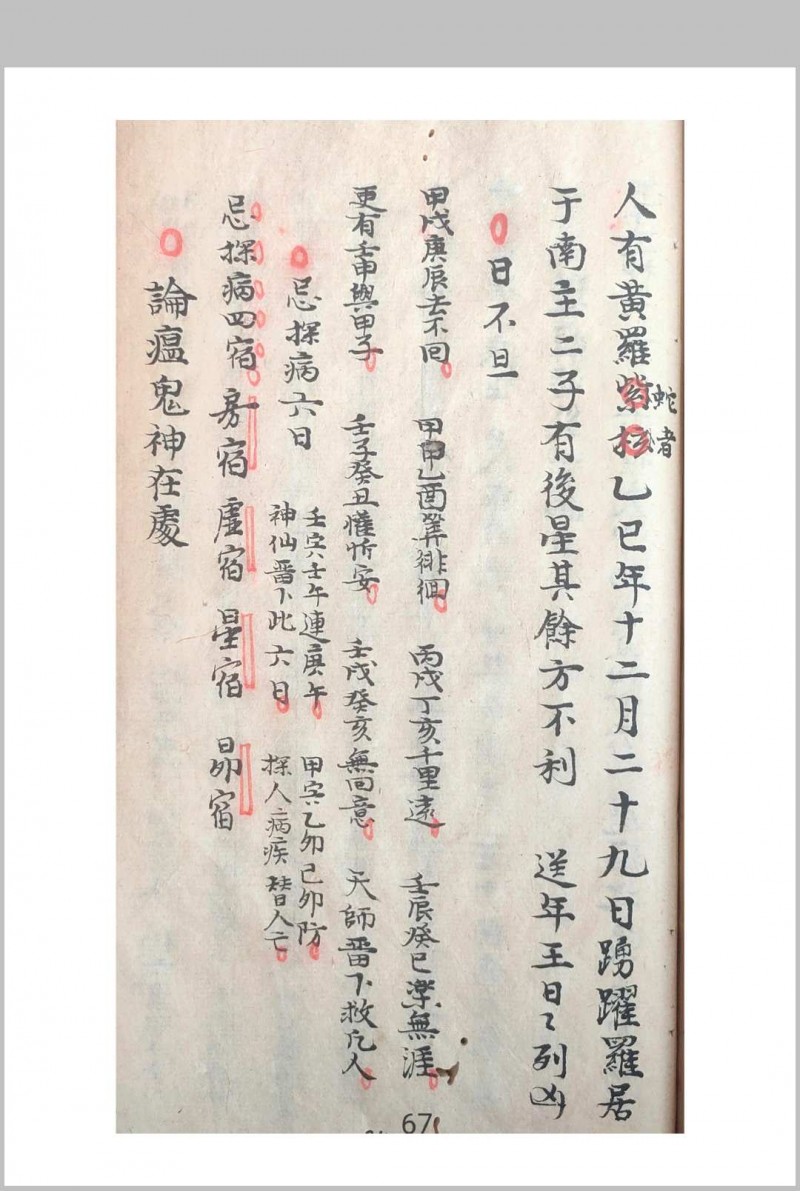 人有黃羅紫拉乙巳年十二月二十九日踴躍羅居
蛇者
于南主二子有後星其餘方不利 送年王日〻列凶
日不旦
甲戌庚辰去不回 甲申乙酉算徘徊 丙戌丁亥千里遠 壬辰癸巳樂無涯
更有壬申與甲子 壬子癸丑懽忻安 壬戌癸亥無回意 天師畱下救凡人
忌探病六日
壬寅壬午連庚午 甲寅乙卯己卯防
神仙畱下此六日 探人病疾替人亡
忌探病四宿 房宿 虛宿 星宿 昴宿
論瘟鬼神在處
67